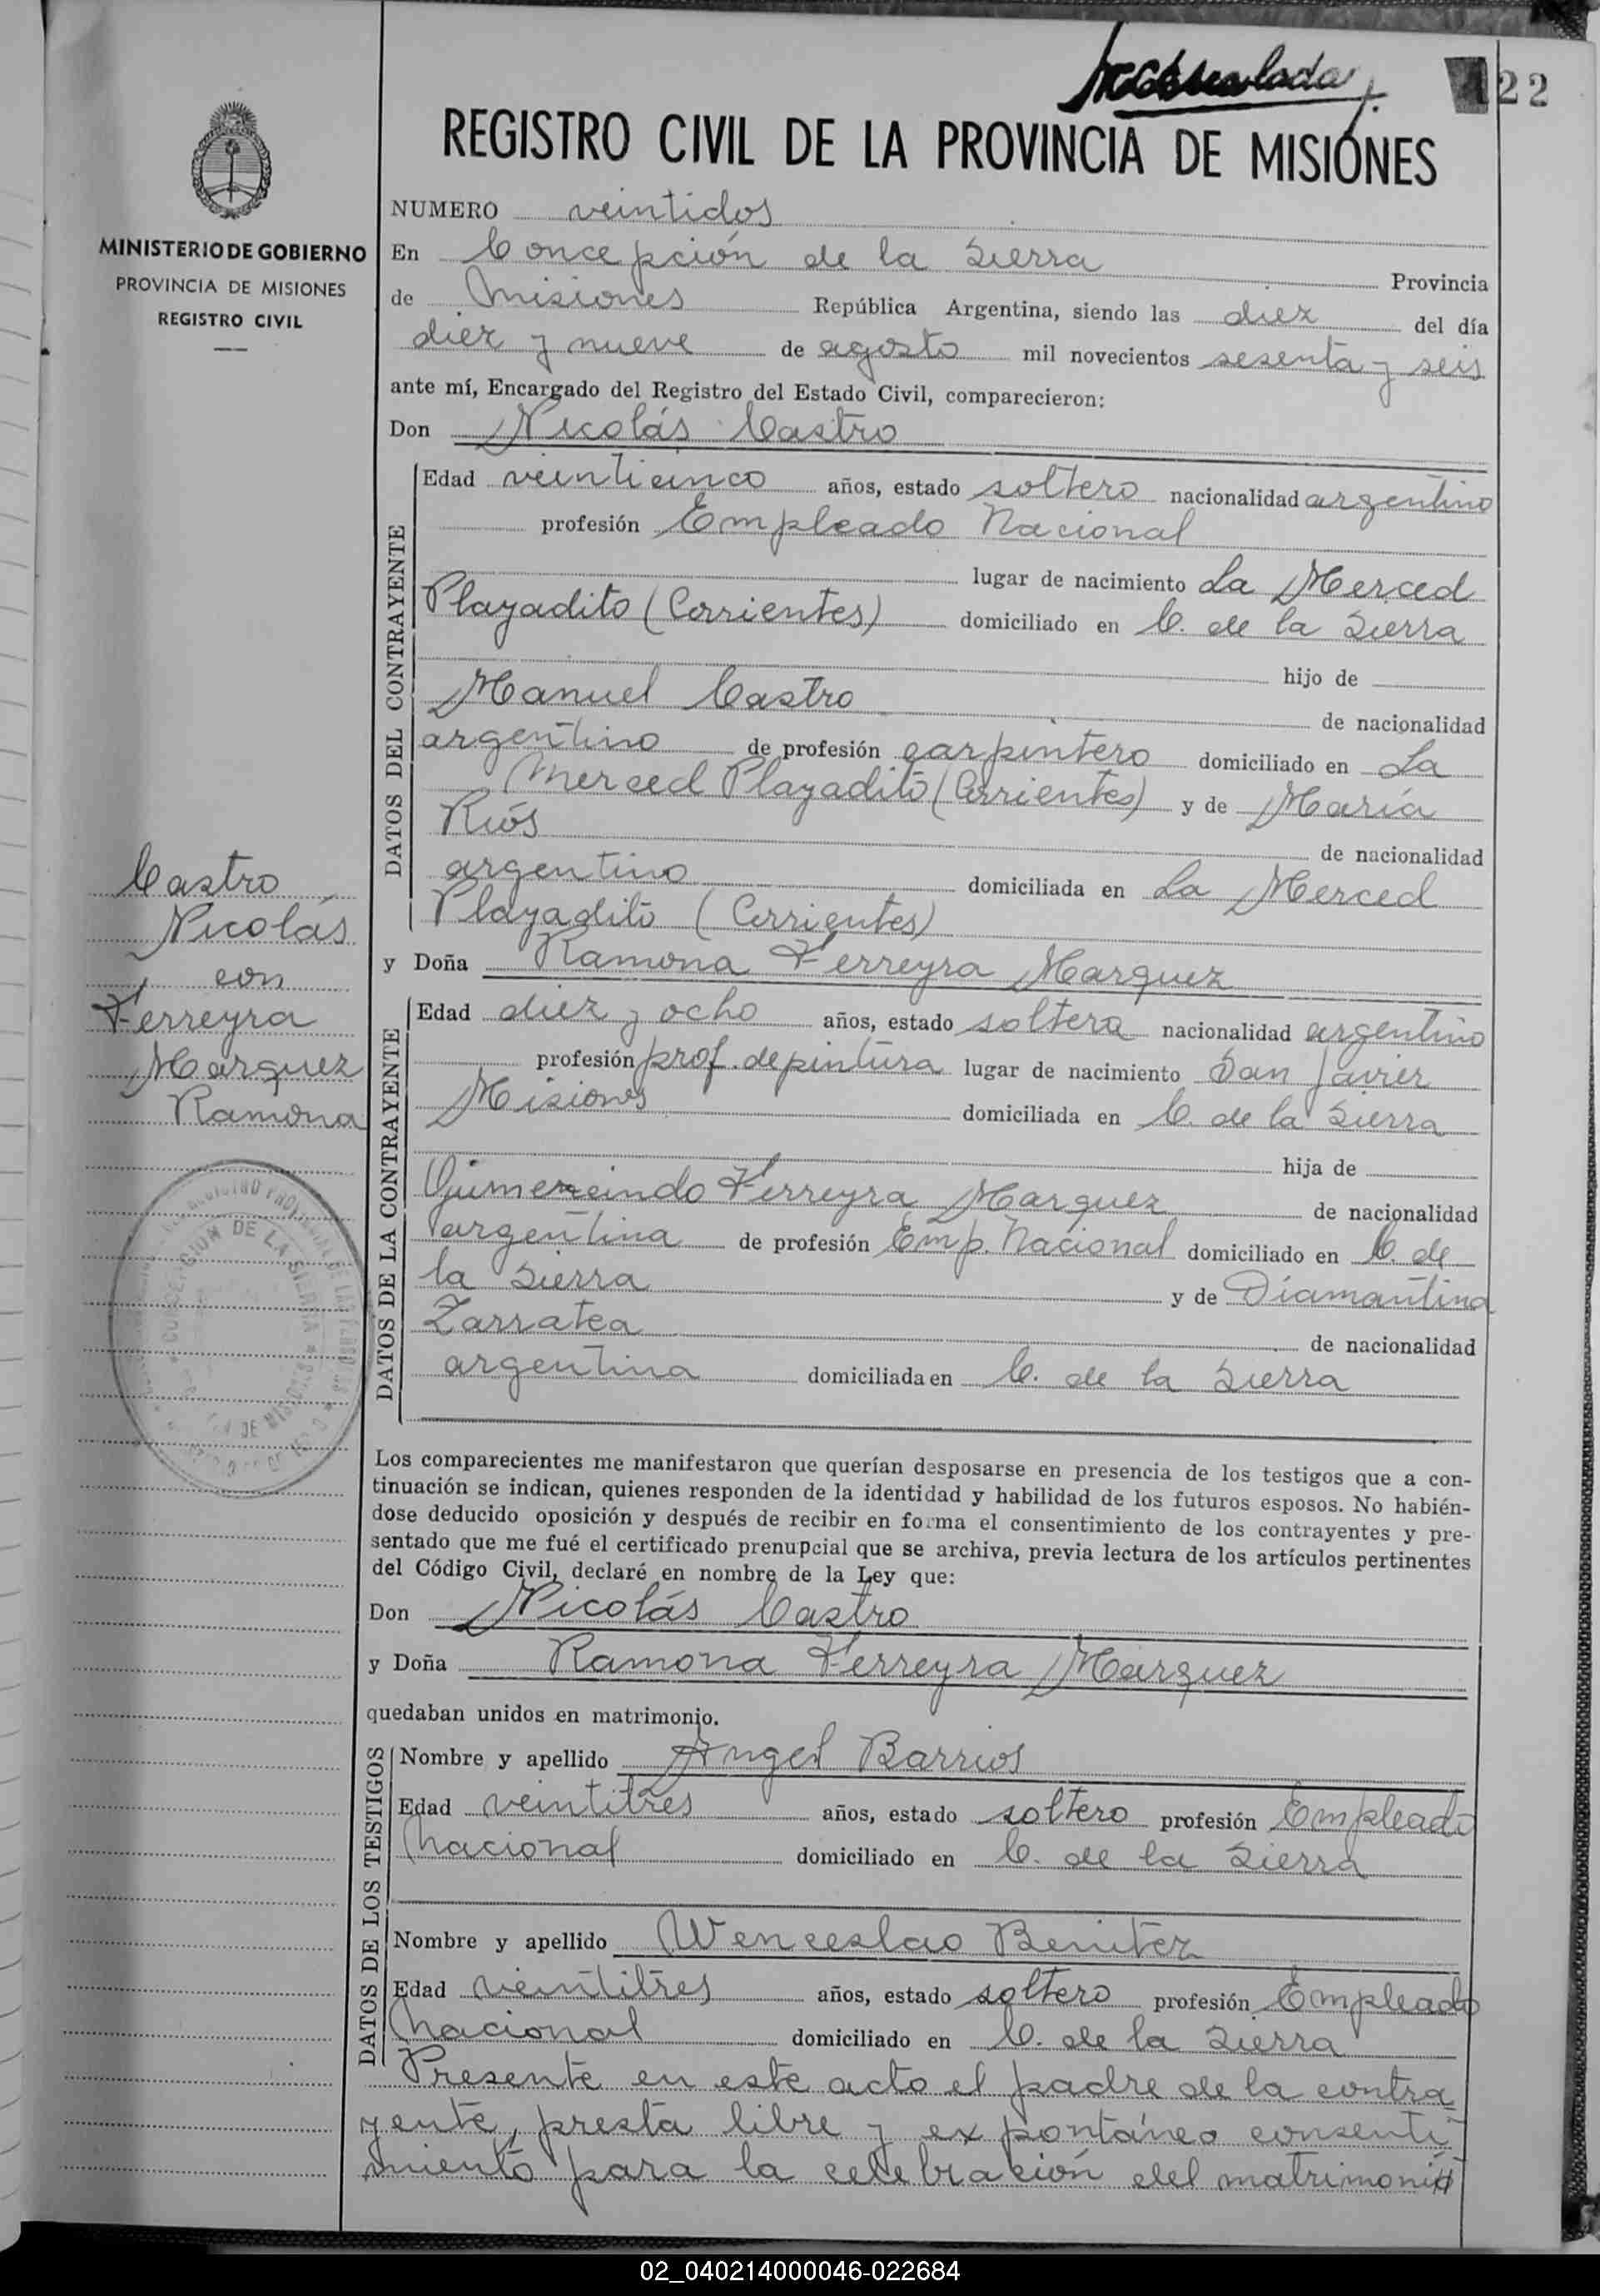 22
REGISTRO CIVIL DE LA PROVINCIA DE MISIONES
MINISTERIO DE GOBIERNO
PROVINCIA DE MISIONES
REGISTRO CIVIL
NUMERO veintidos
En Concepción de la Sierra Provincia
de Misiones República Argentina, siendo las diez del día
diez y nueve de agosto mil novecientos sesenta y seis
ante mí, Encargado del Registro del Estado Civil, comparecieron:
Don Nicolás Castro
DATOS DEL CONTRAYENTE
Edad veinticinco años, estado soltero nacionalidad argentino
profesión Empleado Nacional
lugar de nacimiento La Merced
Playadito (Corrientes) domiciliado en C. de la Sierra
hijo de
Manuel Castro de nacionalidad
argentino de profesión carpintero domiciliado en La
Merced Playadito (Corrientes) y de María
Riós de nacionalidad
argentino domiciliada en La Merced
Playadito (Corrientes)
Castro
Nicolás
con
Ferreyra
Marquez
Ramona
y Doña Ramona Ferreyra Marquez
DATOS DE LA CONTRAYENTE
Edad diez y ocho años, estado soltera nacionalidad argentino
profesión prof. de pintura lugar de nacimiento San Javier
Misiones domiciliada en C. de la Sierra
hija de
Ferreyra Marquez de nacionalidad
argentina de profesión Emp. Nacional domiciliado en C. de
la Sierra y de Diamantina
Zarratea de nacionalidad
argentina domiciliada en C. de la Sierra
DE LA SIERRA
Los comparecientes me manifestaron que querían desposarse en presencia de los testigos que a con-
tinuación se indican, quienes responden de la identidad y habilidad de los futuros esposos. No habién-
dose deducido oposición y después de recibir en forma el consentimiento de los contrayentes y pre-
sentado que me fué el certificado prenupcial que se archiva, previa lectura de los artículos pertinentes
del Código Civil, declaré en nombre de la Ley que:
Don Nicolás Castro
y Doña Ramona Ferreyra Marquez
quedaban unidos en matrimonio.
DATOS DE LOS TESTIGOS
Nombre y apellido Angel Barrios
Edad veintitres años, estado soltero profesión Empleado
Nacional domiciliado en C. de la Sierra
Nombre y apellido Wenceslao Benitez
Edad veintitres años, estado soltero profesión Empleado
Nacional domiciliado en C. de la Sierra
Presente en este acto el padre de la contra
yente, presta libre y expontáneo consenti
miento para la celebracion del matrimonio
02_040214000046-022684